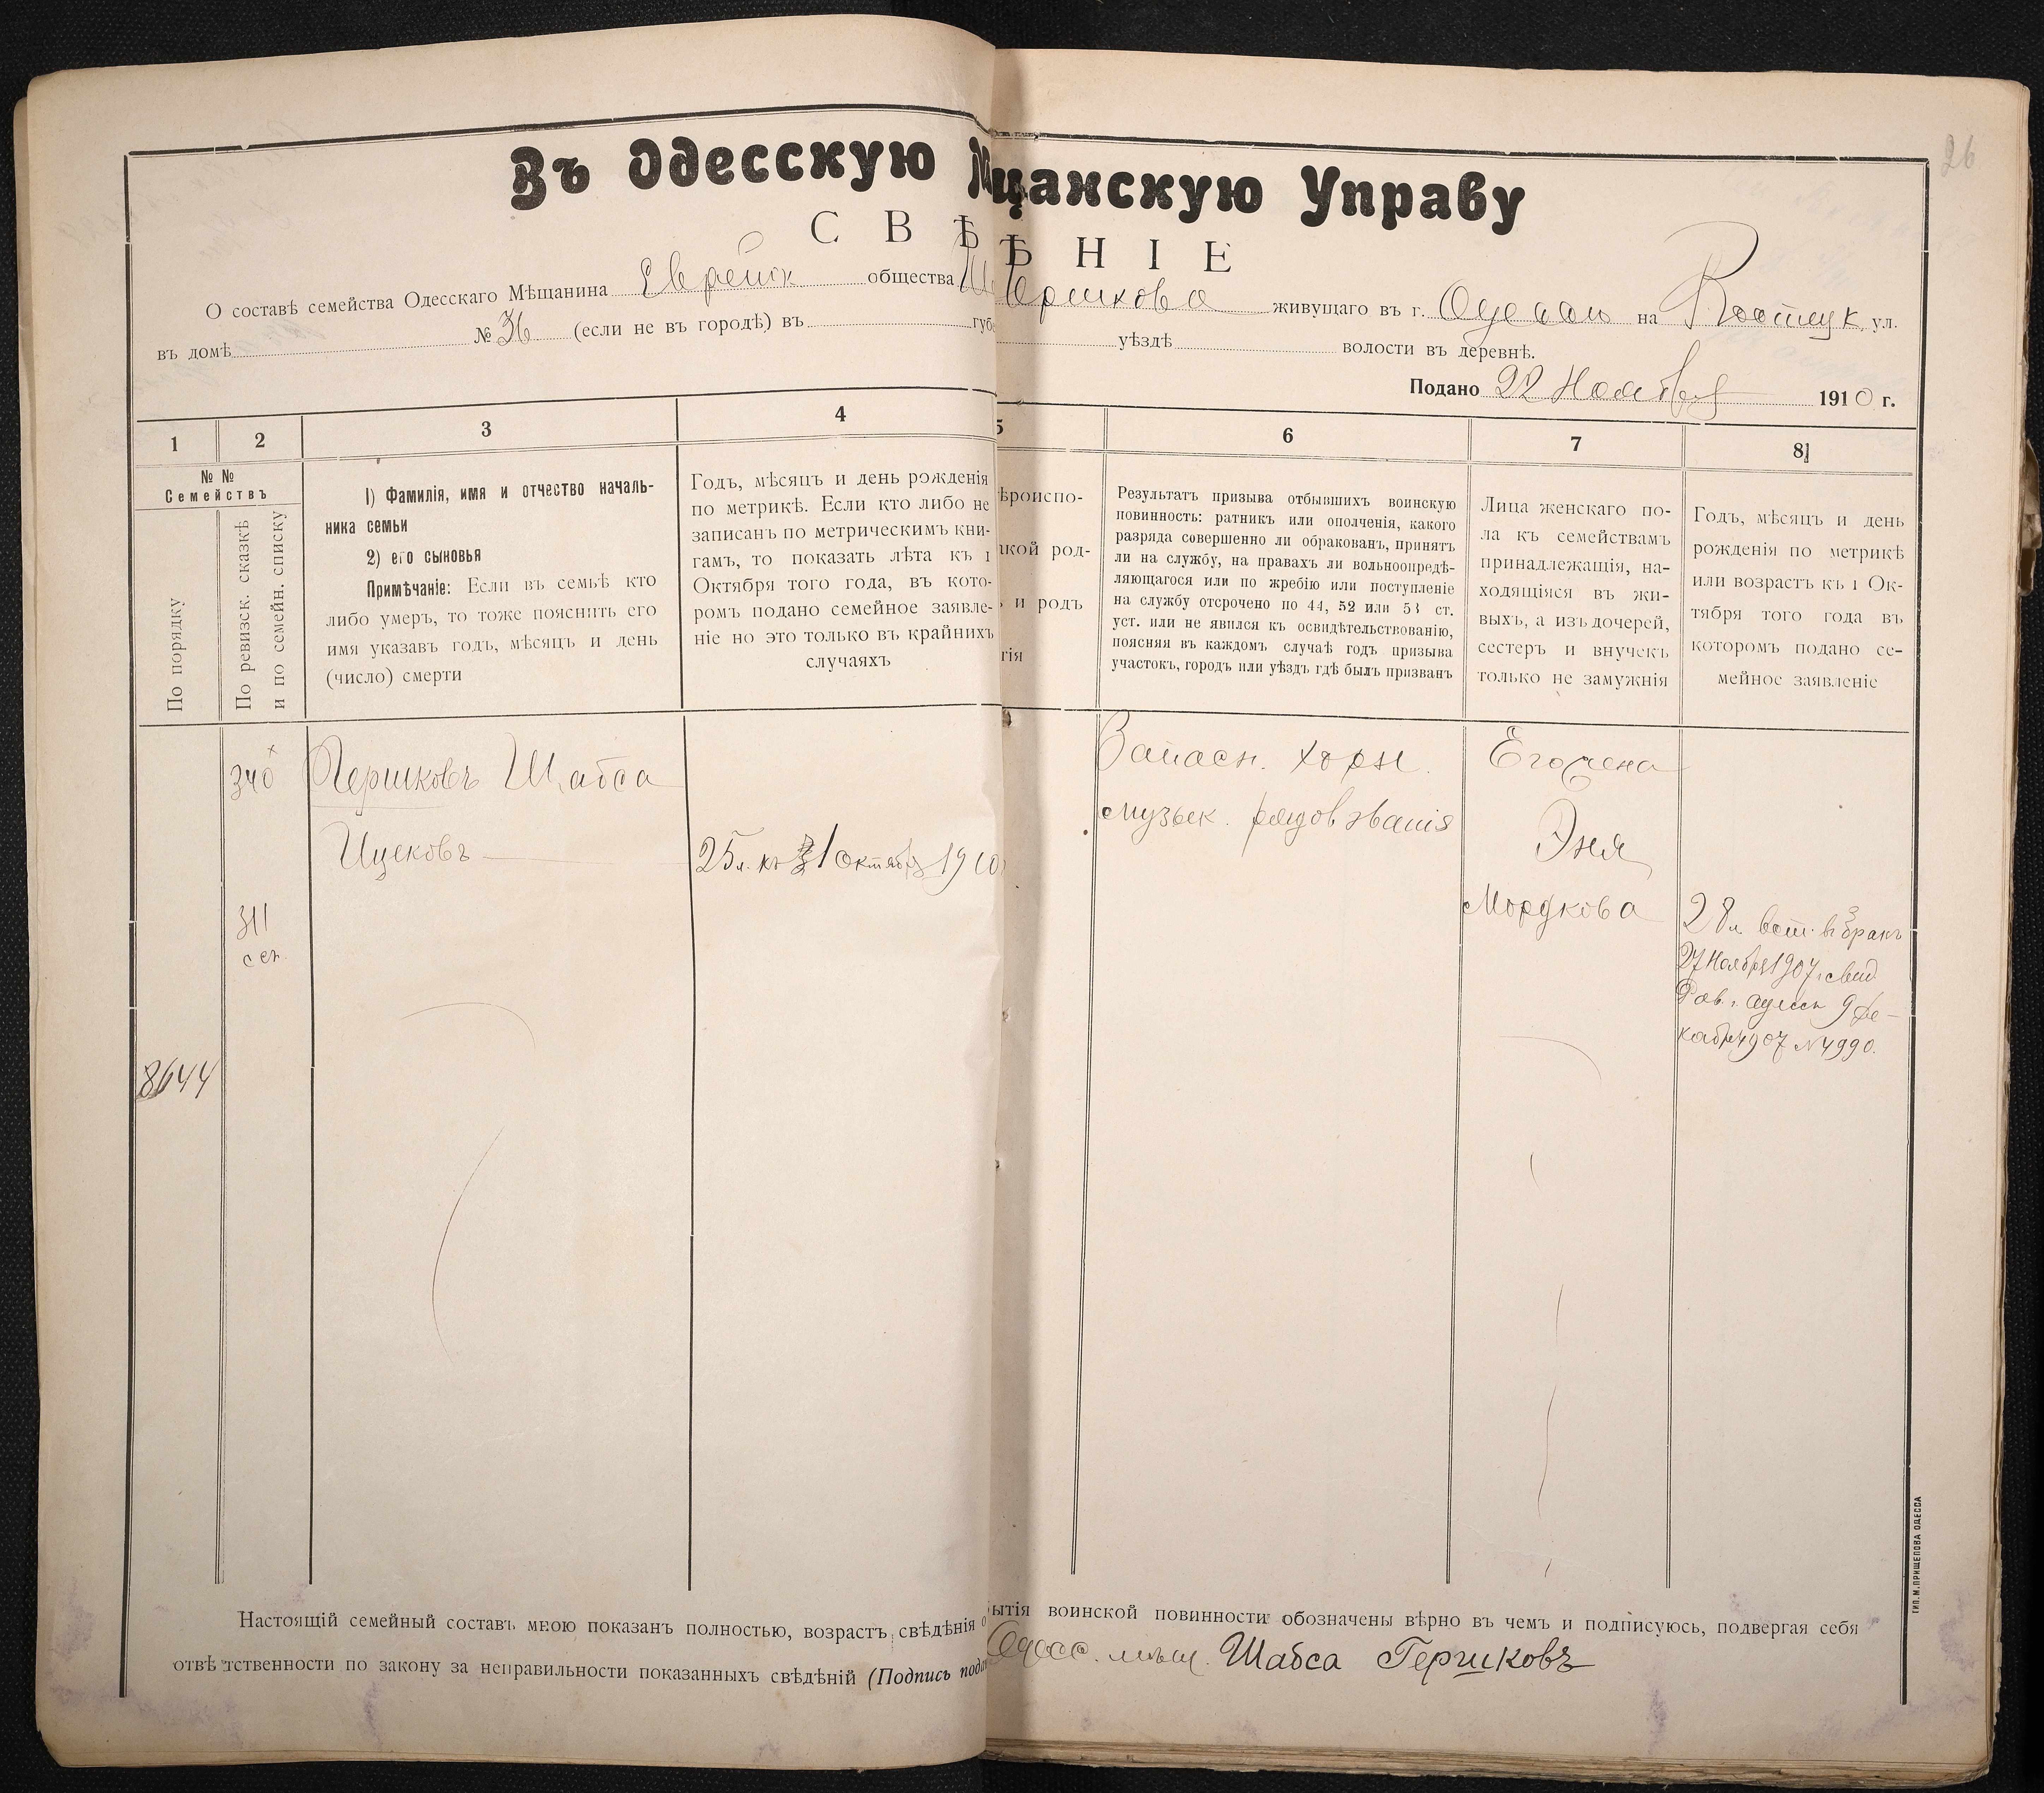 26
Въ Одесскую Мѣщанскую Управу
СВѢ НІЕ
О составѣ семейства Одесскаго Мѣщанина Еврейск общества Ш Гершкова живущаго въ г. Одессѣ на ул.
въ домѣ № 36 (если не въ городѣ) въ губ уѣздѣ волости въ деревнѣ.
Подано 22 Ноября 1910 г.
1 2 3 4 5 6 7 8
№ №
Семействъ
По порядку
По ревизск. сказкѣ
и по семейн. списку
1) Фамилія, имя и отчество началь-
ника семьи
2) его сыновья
Примѣчаніе: Если въ семьѣ кто
либо умеръ, то тоже пояснить его
имя указавъ годъ, мѣсяцъ и день
(число) смерти
Годъ, мѣсяцъ и день рожденія
по метрикѣ. Если кто либо не
записанъ по метрическимъ кни-
гамъ, то показать лѣта къ 1
Октября того года, въ кото-
ромъ подано семейное заявле-
ніе но это только въ крайнихъ
случаяхъ
ѣроиспо-
акой род-
и родъ
гія
Результатъ призыва отбывшихъ воинскую
повинность: ратникъ или ополченія, какого
разряда совершенно ли обракованъ, принятъ
ли на службу, на правахъ ли вольноопредѣ-
ляющагося или по жребію или поступленіе
на службу отсрочено по 44, 52 или 53 ст.
уст. или не явился къ освидѣтельствованію,
поясняя въ каждомъ случаѣ годъ призыва
участокъ, городъ или уѣздъ гдѣ былъ призванъ
Лица женскаго по-
ла къ семействамъ
принадлежащія, на-
ходящіяся въ жи-
выхъ, а изъ дочерей,
сестеръ и внучекъ
только не замужнія
Годъ, мѣсяцъ и день
рожденія по метрикѣ
или возрастъ къ 1 Ок-
тября того года въ
которомъ подано се-
мейное заявленіе
340
Гершковъ Шабса
Ицековъ
25 л. къ 1 Октября 1910
311
сем.
8644
Запасн.
музык. рядов званія
Его жена
Эня
Мордкова
28 л вст. въ бракъ
27 Ноября 1907 г. свид
Рав. г. Одессы 9 Де-
кабря 1907 № 4990.
Настоящій семейный составъ мною показанъ полностью, возрастъ, свѣдѣнія о бытія воинской повинности обозначены вѣрно въ чемъ и подписуюсь, подвергая себя
отвѣтственности по закону за неправильности показанныхъ свѣдѣній (Подпись пода Одесс. мѣщ. Шабса Гершковъ
ТИП. М. ПРИЩЕПОВА ОДЕССА